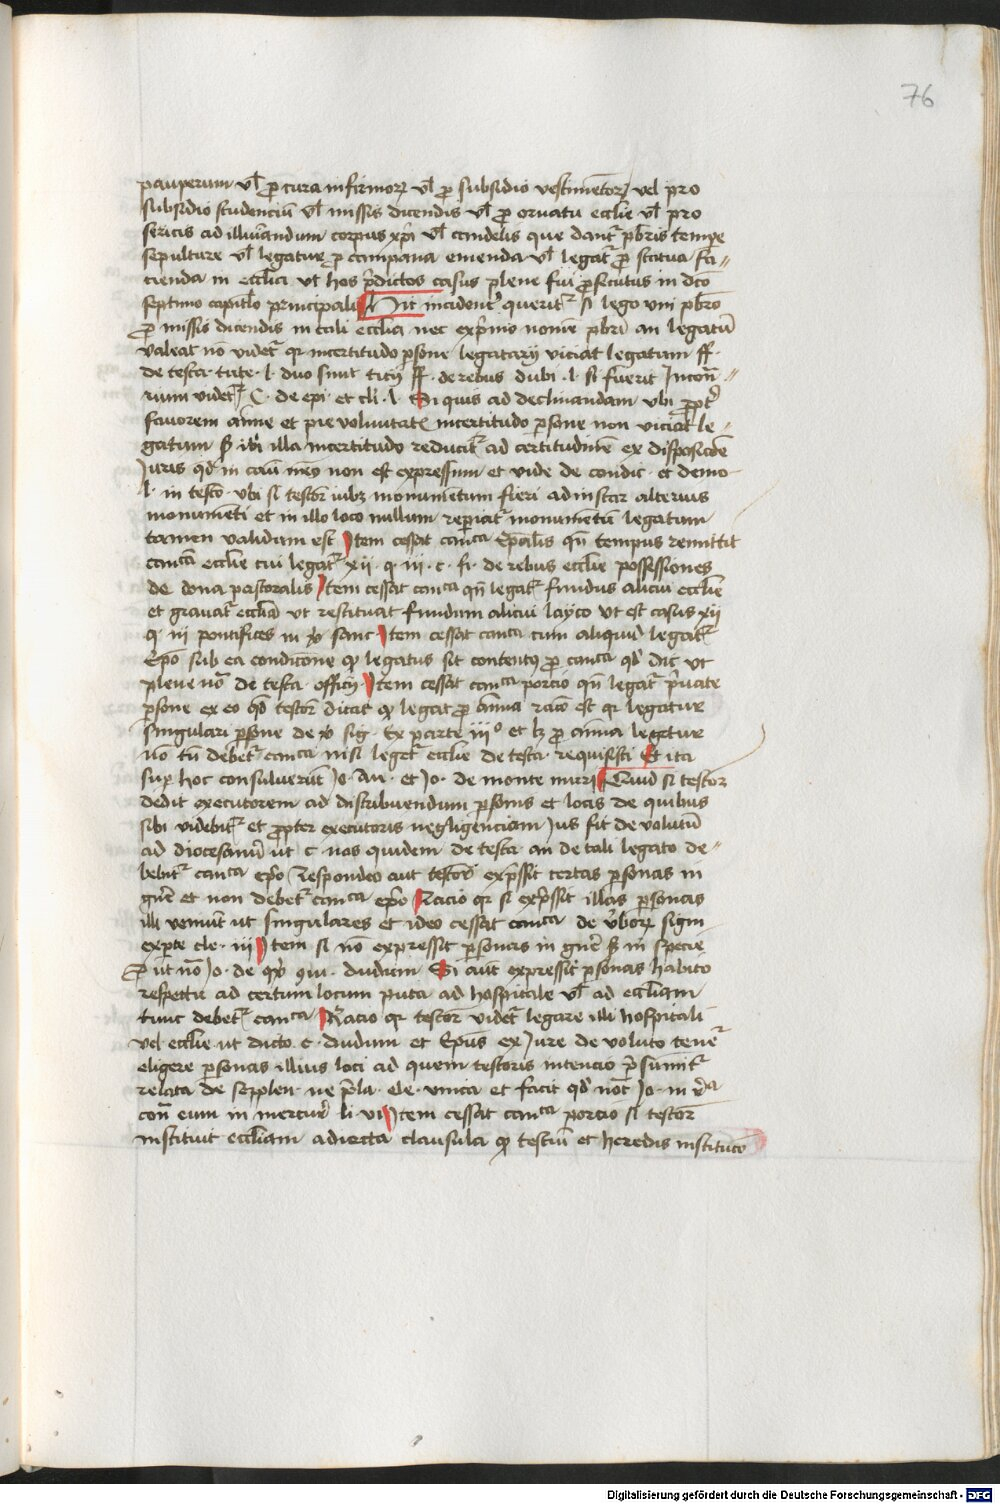 76
pauperum vel pro cura infirmorum vel pro subsidio vestimentorum vel pro
subsidio studencium vel missis dicendis vel pro ornatu ecclie vel pro
sericis ad illuminandum corpus xpi vel candelis que dantur pbris tempore
sepulture vel legatur pro campana emenda vel legatur pro statua fa-
cienda in ecclia ut hos predictos casus plene fui prosecutus in dco
septimo capitlo principali Hic incidenter queritur si lego uni pbro
pro missis dicendis in tali ecclia nec exprimo nomen pbri an legatum
valeat non videtur quia incertitudo persone legatarii viciat legatum ff.
de testa. tute. l. duo sunt titii ff. de rebus dubi. l. si fuerit In con-
rium videtur C. de epi. et cli. l. Si quis ad declinandam ubi propter
favorem anime et pie voluntatis incertitudo persone non viciat le-
gatum sed ibi illa incertitudo reducitur ad certitudinem ex disposicione
Juris quod in casu meo non est expressum et vide de condic. et demo
l. in testo. ubi si testor iubet monumentum fieri ad instar alterius
monumenti et in illo loco nullum reperiatur monumentum legatum
tamen validum est Item cessat canca Epalis quando tempus remittit
cancam ecclie cui legatur xii. q. iii. c. fi. de rebus ecclie possessiones
de dona pastoralis Item cessat canca quando legatur fundus alicui ecclie
et gravatur ecclia ut restituat fundum alicui layco ut est casus xii
q. iii pontifices in vo sanc Item cessat canca cum aliquid legatur
Epo sub ea condicione quod legatus sit contentus pro canca quod dic ut
plene no. de testa. officii. Item cessat canca porcio quando legatur private
persone ex eo quod testor dicat quod legat pro anima racio est quia legatur
singulari persone de vo. sig. Ex parte iiio et licet pro anima legetur
non tamen debetur canca nisi legetur ecclie de testa. requisisti Et ita
super hoc consuluerunt Jo. An. et Jo. de monte murri Quid si testor
dedit executorem ad distribuendum personis et locis de quibus
sibi videbitur et propter executoris negligenciam Jus sit devolutum
ad diocesanum ut c. nos quidem de testa. an de tali legato de-
bebitur canca epo Respondeo aut testor expressit certas personas in
genere et non debetur canca epo Racio quia si expressit illas personas
illi veniunt ut singulares et ideo cessat canca de verborum signi
ex parte cle. iii Item si non expressit personas in genere sed in specie
ut no. Jo. de dudum Si autem expressit personas habito
respectu ad certum locum puta ad hospitale vel ad eccliam
tunc debetur canca Racio quia testor videtur legare illi hospitali
vel ecclie ut dicto c. dudum et Epus ex Jure devoluto tenetur
eligere personas illius loci ad quem testoris intencio presumitur
relata de sepplen. ne prela. cle. unica et facit quod not. Jo. in
eum in mercur. li. vi Item cessat canca porcio si testor
instituit eccliam adiecta clausula quod testium et heredis institucio